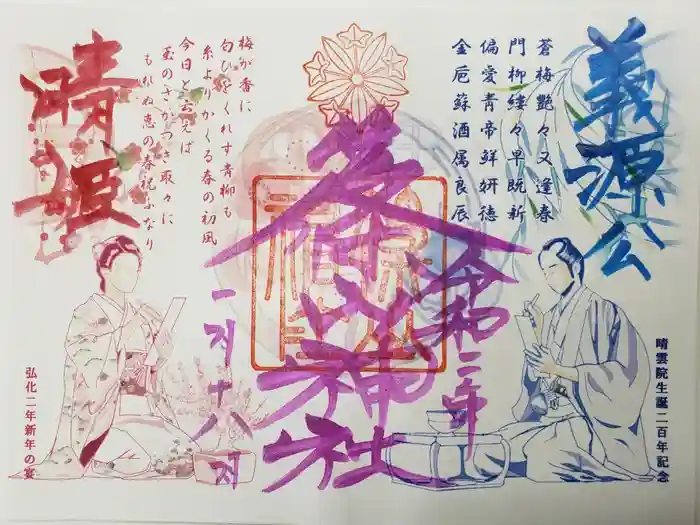 義源公
蒼梅艶々又逢春
門柳縷々早既新
偏愛青帝鮮妍徳
金巵蘇酒属良辰
晴雲院生誕二百年記念
令和二年
篠山神社
一月十八日
梅が香に
匂ひをくれす青柳も
糸よりかくる春の初風
今日と云えば
玉のさかつき取々に
もれぬ恵の春祝ふなり
晴姫
弘化二年新年の宴